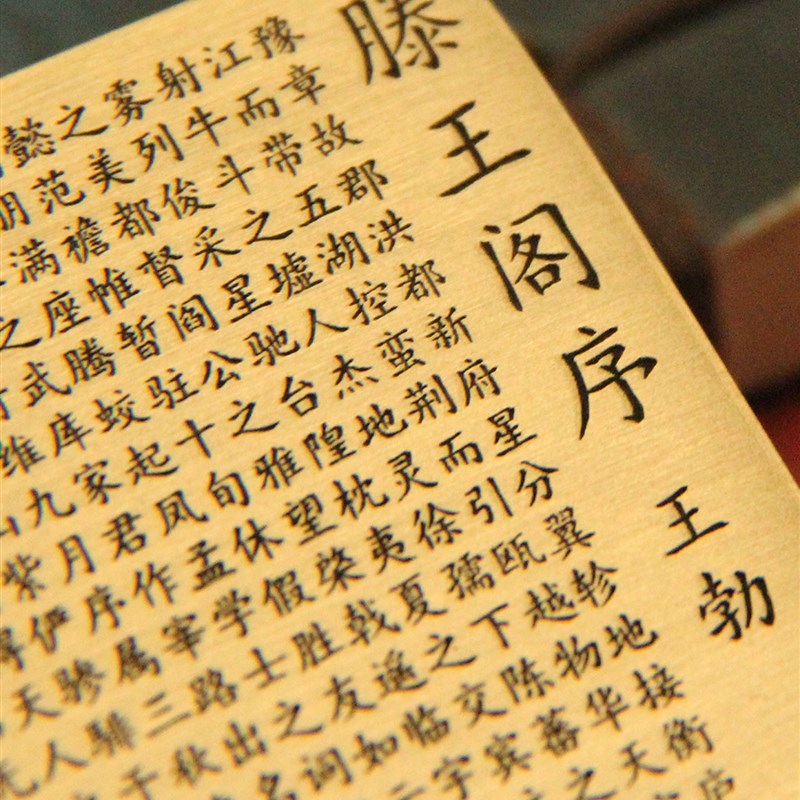 滕王阁序
王勃
豫章故郡洪都新府星分翼轸地接衡庐
江而带五湖控蛮荆而引瓯越物华天
射牛斗之墟人杰地灵徐孺下陈蕃之
雾列俊采星驰台隍枕夷夏之交宾主
之美都督阎公之雅望棨戟遥临宇
懿范襜帷暂驻十旬休假胜友如
朋满座腾蛟起凤孟学士之词
之武库家君作宰路出名
维九月序属三秋
山紫俨骖騑于
天人